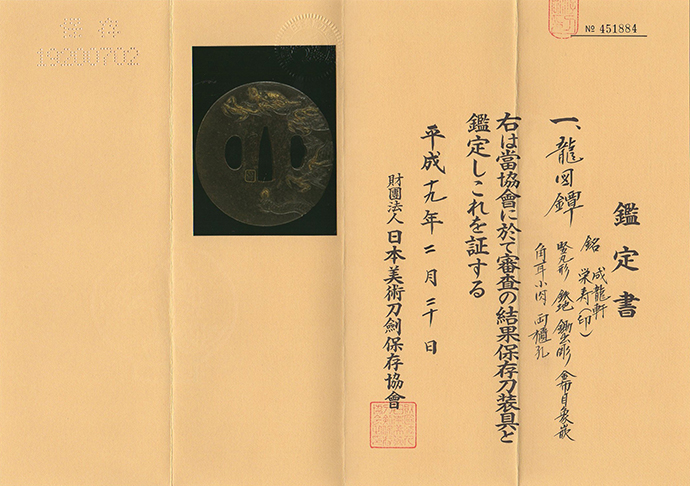 № 451884
鑑定書
一、龍図鐔
銘 成龍軒
栄寿(印)
竪丸形 鉄地 鋤出彫 金布目象嵌
角耳小肉 両櫃孔
右は當協會に於て審査の結果保存刀装具と
鑑定しこれを証する
平成十九年二月二十日
財團法人 日本美術刀劍保存協會
保存
19200702